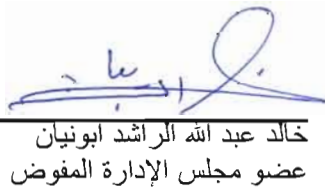 خالد عبد الله الراشد ابونيان
عضو مجلس الإدارة المفوض